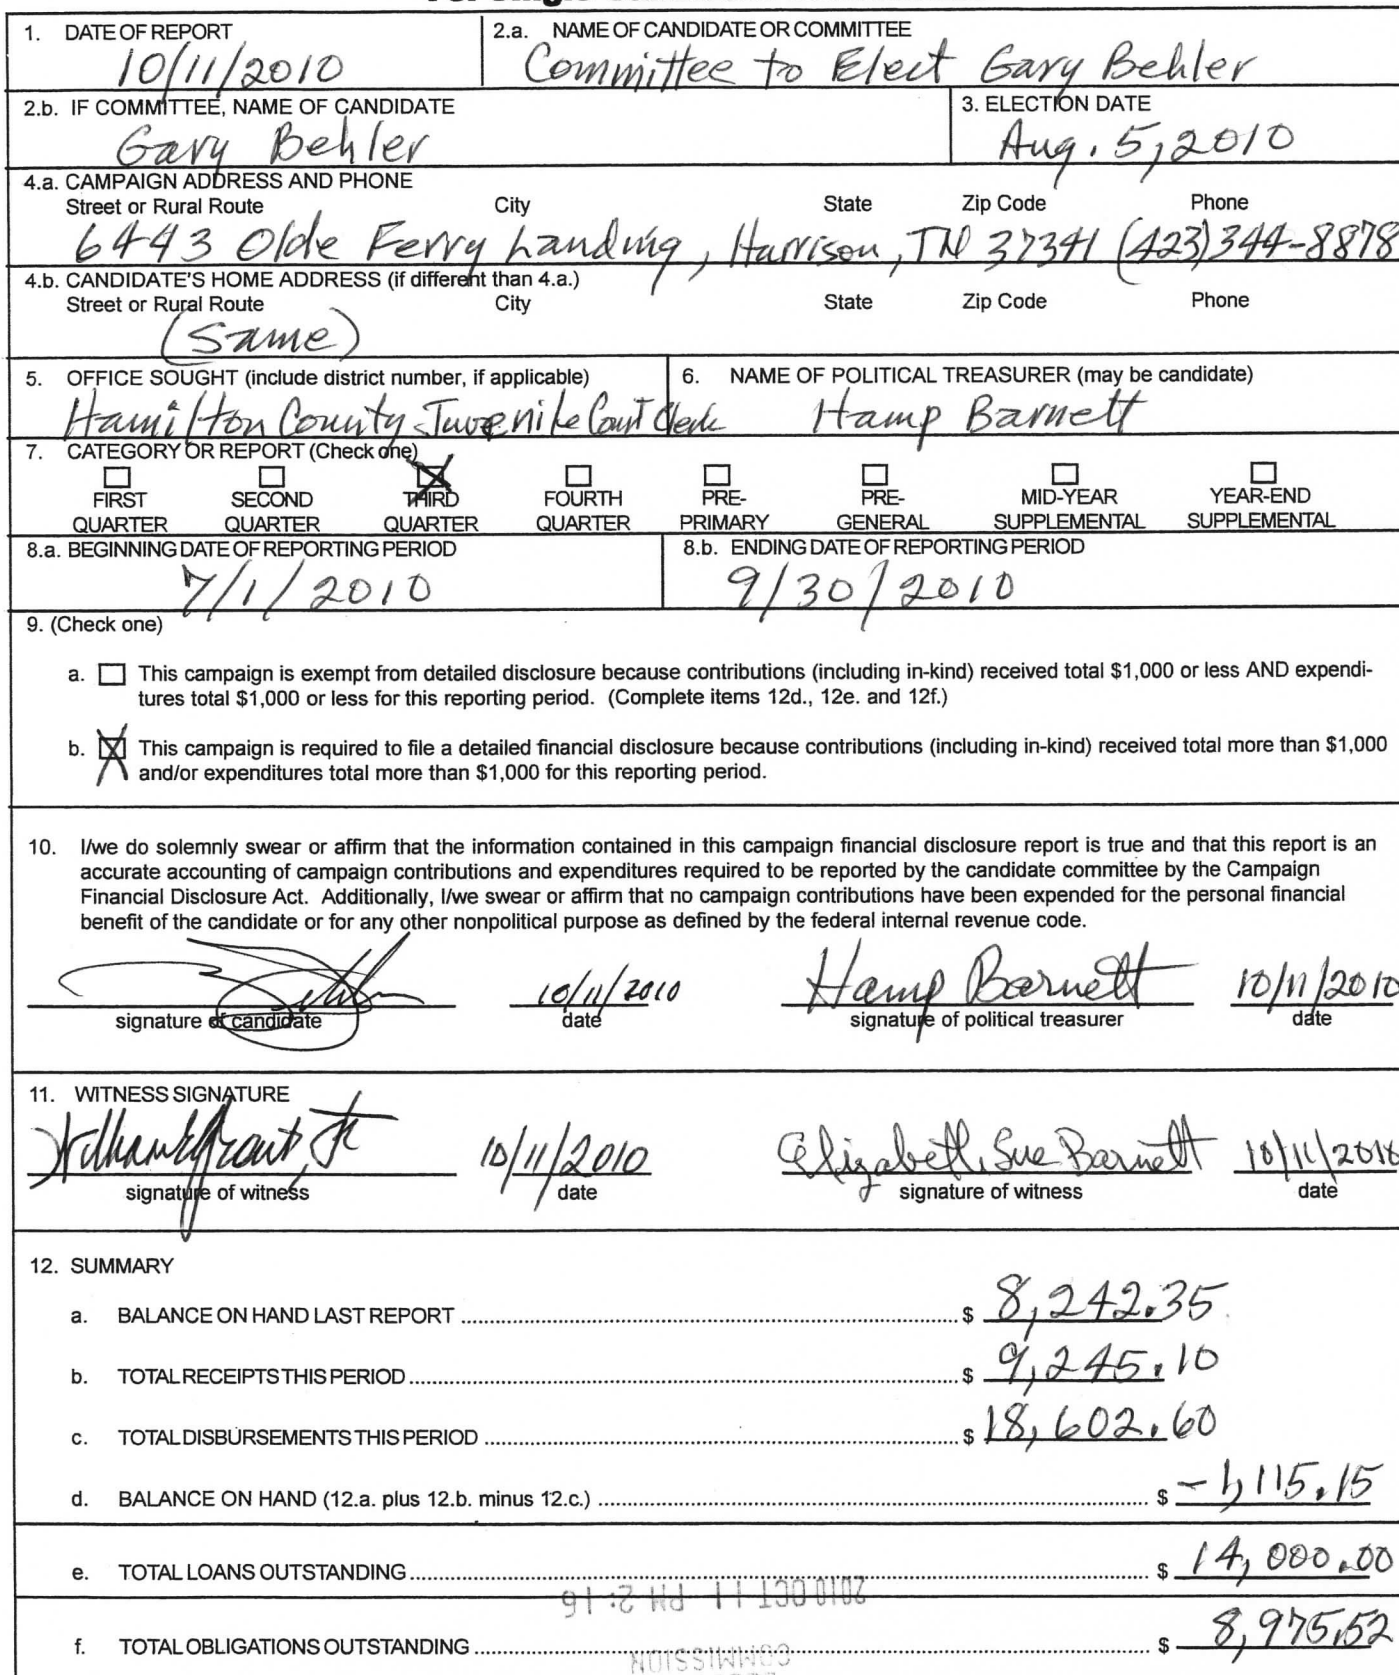 1. DATE OF REPORT
10/11/2010
2.a. NAME OF CANDIDATE OR COMMITTEE
Committee to Elect Gary Behler
2.b. IF COMMITTEE, NAME OF CANDIDATE
Gary Behler
3. ELECTION DATE
Aug. 5, 2010
4.a. CAMPAIGN ADDRESS AND PHONE
Street or Rural Route City State Zip Code Phone
6443 Olde Ferry Landing, Harrison, TN 37341 (423)344-8878
4.b. CANDIDATE'S HOME ADDRESS (if different than 4.a.)
Street or Rural Route City State Zip Code Phone
(Same)
5. OFFICE SOUGHT (include district number, if applicable)
Hamilton County Juvenile Court Clerk
6. NAME OF POLITICAL TREASURER (may be candidate)
Hamp Barnett
7. CATEGORY OR REPORT (Check one)
FIRST SECOND THIRD FOURTH PRE- PRE- MID-YEAR YEAR-END
QUARTER QUARTER QUARTER QUARTER PRIMARY GENERAL SUPPLEMENTAL SUPPLEMENTAL
8.a. BEGINNING DATE OF REPORTING PERIOD
7/1/2010
8.b. ENDING DATE OF REPORTING PERIOD
9/30/2010
9. (Check one)
a. This campaign is exempt from detailed disclosure because contributions (including in-kind) received total $1,000 or less AND expendi-
tures total $1,000 or less for this reporting period. (Complete items 12d., 12e. and 12f.)
b. This campaign is required to file a detailed financial disclosure because contributions (including in-kind) received total more than $1,000
and/or expenditures total more than $1,000 for this reporting period.
10. I/we do solemnly swear or affirm that the information contained in this campaign financial disclosure report is true and that this report is an
accurate accounting of campaign contributions and expenditures required to be reported by the candidate committee by the Campaign
Financial Disclosure Act. Additionally, I/we swear or affirm that no campaign contributions have been expended for the personal financial
benefit of the candidate or for any other nonpolitical purpose as defined by the federal internal revenue code.
10/11/2010 Hamp Barnett 10/11/2010
signature of candidate date signature of political treasurer date
11. WITNESS SIGNATURE
10/11/2010 Elizabeth Sue Barnett 10/11/2010
signature of witness date signature of witness date
12. SUMMARY
a. BALANCE ON HAND LAST REPORT $ 8,242.35
b. TOTAL RECEIPTS THIS PERIOD $ 9,245.10
c. TOTAL DISBURSEMENTS THIS PERIOD $ 18,602.60
d. BALANCE ON HAND (12.a. plus 12.b. minus 12.c.) $ -1,115.15
e. TOTAL LOANS OUTSTANDING $ 14,000.00
2010 OCT 11 PM 2:16
f. TOTAL OBLIGATIONS OUTSTANDING $ 8,975.52
COMMISSION